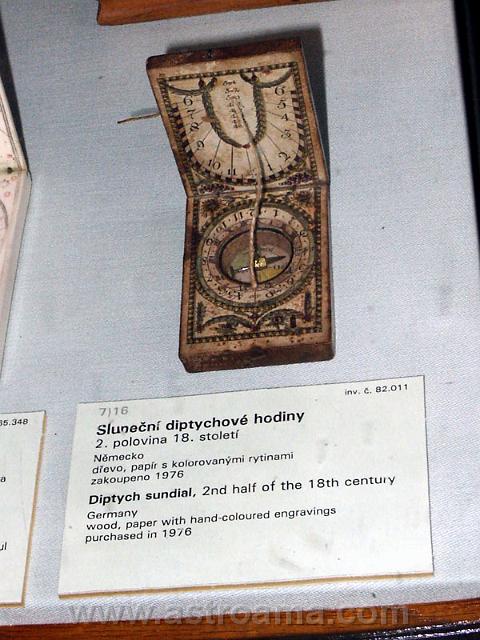 inv. č. 82.011
7)16
Sluneční diptychové hodiny
2. polovina 18. století
Německo
dřevo, papír s kolorovanými rytinami
zakoupeno 1976
Diptych sundial, 2nd half of the 18th century
Germany
wood, paper with hand-coloured engravings
purchased in 1976
www.astroama.com